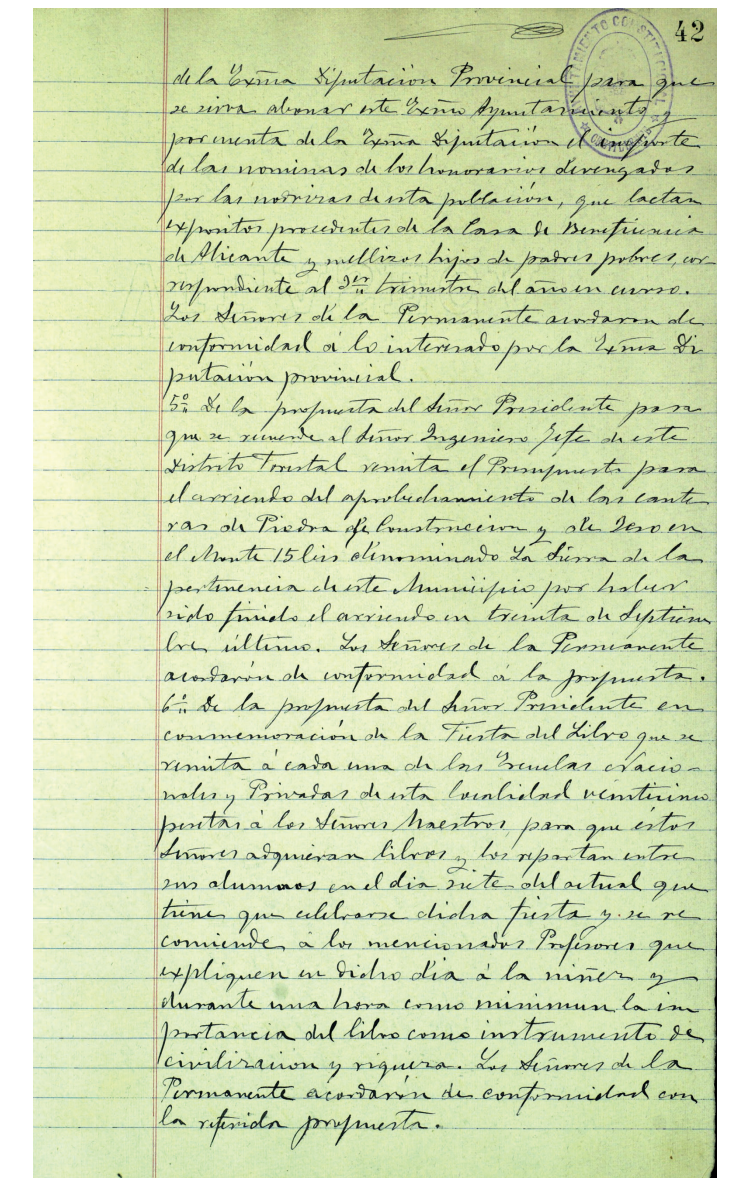 42
AYUNTAMIENTO CONSTITUCIONAL
de la Exma Diputación Provincial para que
se sirva abonar este Exmo Ayuntamiento y
por cuenta de la Exma Diputación el importe
de las nominas de los honorarios devengados
por las nodrizas de esta población, que lactan
expositos procedentes de la Casa de Beneficencia
de Alicante y mellizos hijos de padres pobres, cor
respondiente al 3er trimestre del año en curso.
Los Señores de la Permanente acordaron de
conformidad á lo interesado por la Exma Di
putación provincial.
5º De la propuesta del Señor Presidente para
que se recuerde al Señor Ingeniero Jefe de este
Distrito Forestal remita el Presupuesto para
el arriendo del aprobechamiento de las cante
ras de Piedra de Construccion y de Yeso en
el Monte 15 bis denominado La Sierra de la
pertinencia de este Municipio por haber
sido finido el arriendo en treinta de Septiem
bre último. Los Señores de la Permanente
acordarón de conformidad á la propuesta.
6º De la propuesta del Señor Presidente en
conmemoración de la Fiesta del Libro que se
remita á cada una de las Escuelas Nacio-
nales y Privadas de esta localidad veinticinco
pesetas á los Señores Maestros, para que éstos
Señores adquieran libros y los repartan entre
sus alumnos en el dia siete del actual que
tiene que celebrarse dicha fiesta y se re
comiende á los mencionados Profesores que
expliquen en dicho dia á la niñez y
durante una hora como minimun la im
portancia del libro como instrumento de
civilizacion y riqueza. Los Señores de la
Permanente acordarón de conformidad con
la referida propuesta.